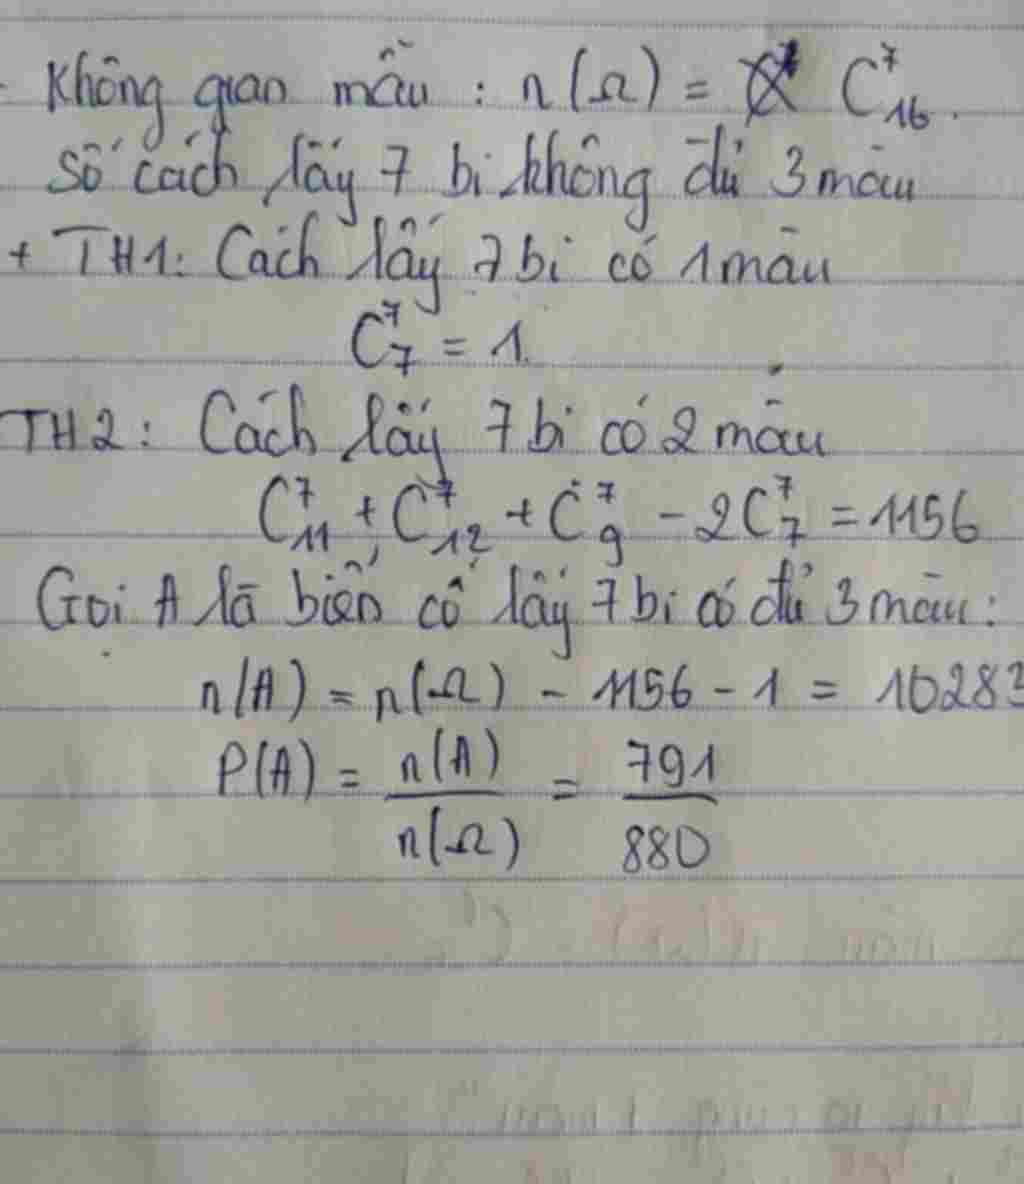 - Không gian mẫu : n(Ω) = C⁷₁₆.
Số cách lấy 7 bi không đủ 3 màu
+ TH1: Cách lấy 7 bi có 1 màu
C⁷₇ = 1
TH2: Cách lấy 7 bi có 2 màu
C⁷₁₁ + C⁷₁₂ + C⁷₉ - 2C⁷₇ = 1156
Gọi A là biến cố lấy 7 bi có đủ 3 màu:
n(A) = n(Ω) - 1156 - 1 = 10283
P(A) = n(A)/n(Ω) = 791/880